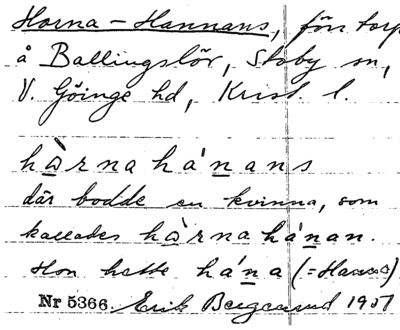 Horna-Hannans, förr torp
å Ballingslöv, Stoby sn,
V. Göinge hd, Krist. l.
hɷ̀rnahánans
där bodde en kvinna, som
kallades hɷ̀rnahánan.
Hon hette hána (= Hanna)
Nr 5366. Erik 1907